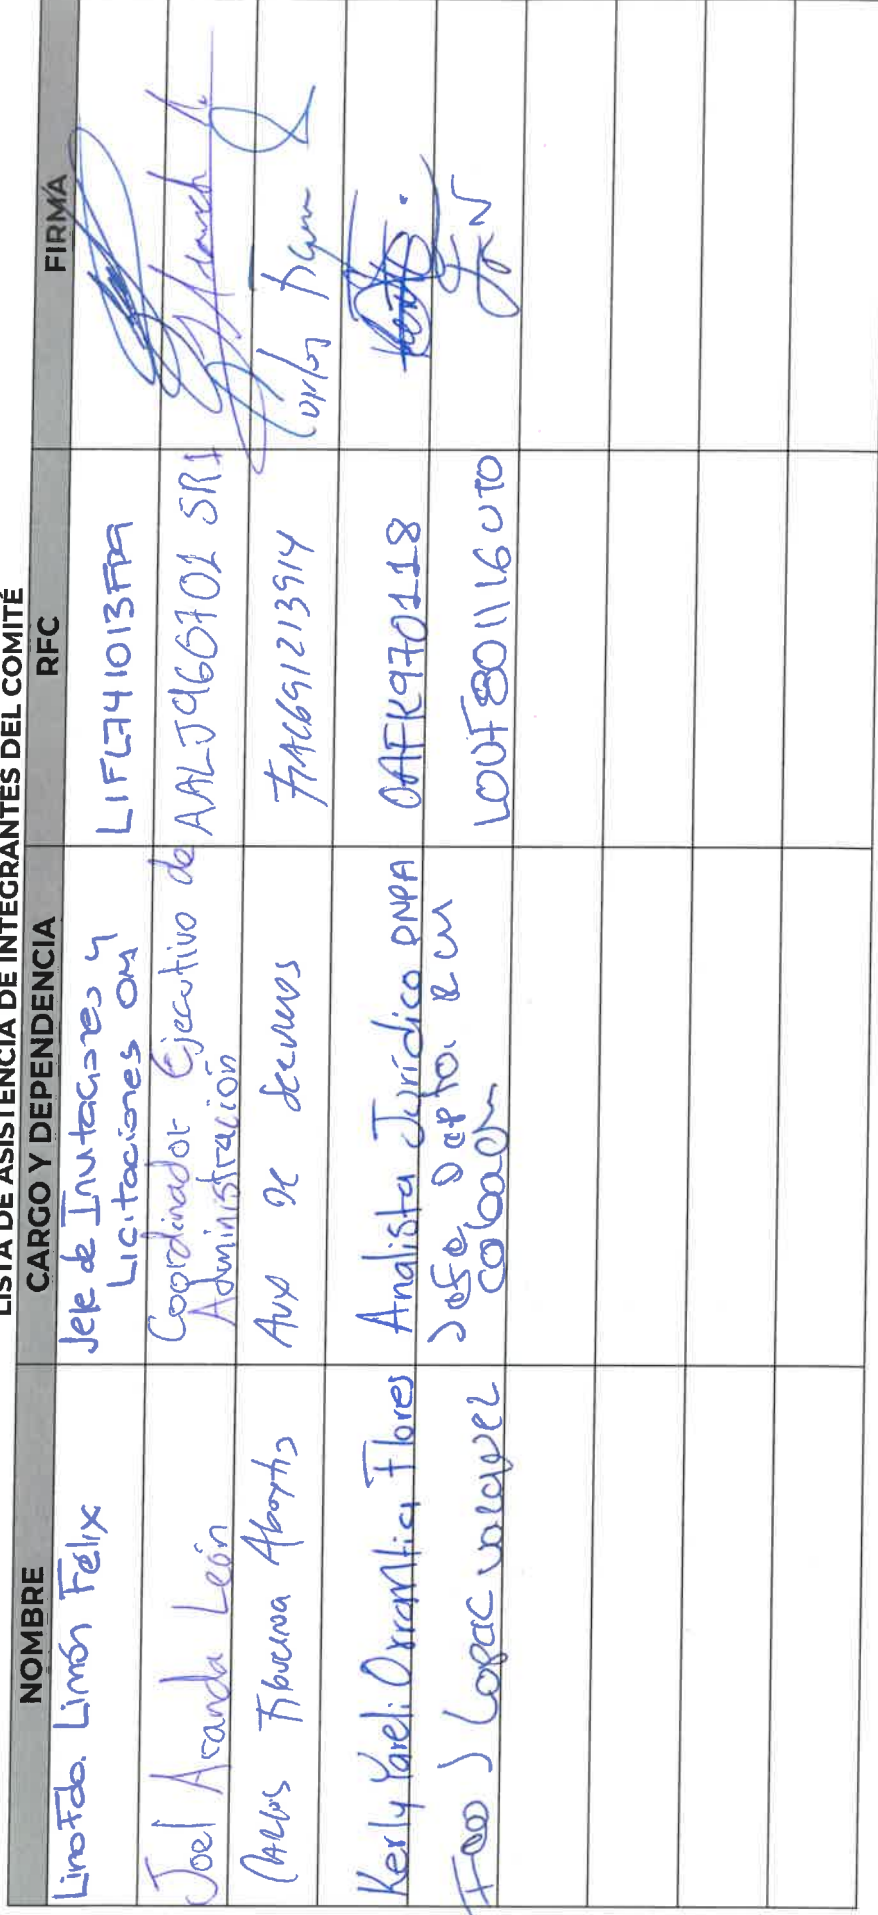 LISTA DE ASISTENCIA DE INTEGRANTES DEL COMITÉ
NOMBRE CARGO Y DEPENDENCIA RFC FIRMA
Lino Fdo. Limón Félix Jefe de Invitaciones y Licitaciones OM LIFL741013FP9
Joel Aranda León Coordinador Ejecutivo de Administración AALJ960701 SR1
Carlos Figueroa Aux de Carlos Figueroa
Kerly Yareli Orrantia Flores Analista Jurídico OAFK970118
Fco J Lopez Jefe Depto. R M cobach LOVF801116UT0